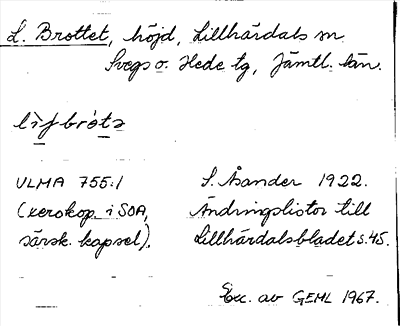 L. Brottet, höjd, Lillhärdals sn
Svegs o. Hede tg, Jämtl. län.
lìʃbrótə
ULMA 755:1
(xerokop. i SOA,
särsk. kapsel).
S. Åsander 1922.
Ändringslistor till
Lillhärdalsbladet s. 45.
Exc. av GEML 1967.